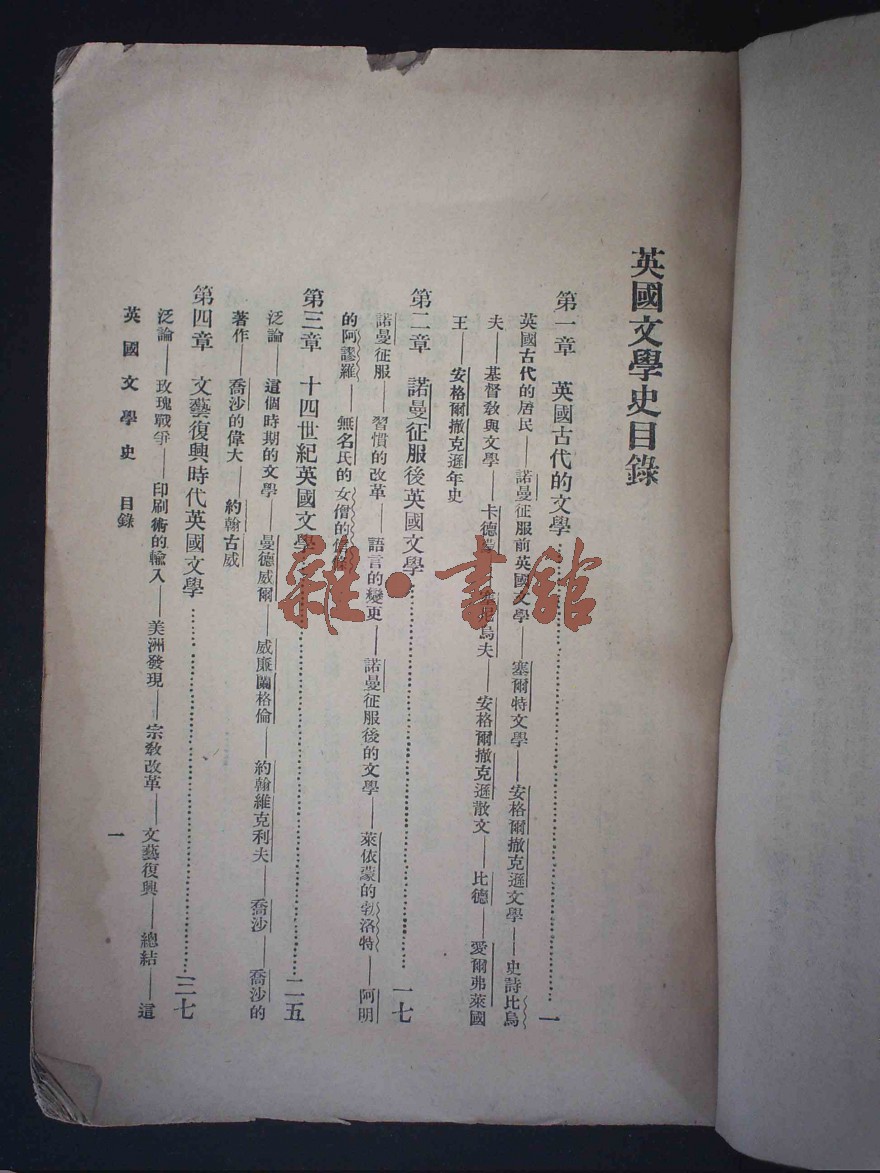 英國文學史目錄
第一章 英國古代的文學……一
英國古代的居民——諾曼征服前英國文學——塞爾特文學——安格爾撒克遜文學——史詩比烏
夫——基督教與文學——卡德蒙——烏夫——安格爾撒克遜散文——比德——愛爾弗萊國
王——安格爾撒克遜年史
第二章 諾曼征服後英國文學……一七
諾曼征服——習慣的改革——語言的變更——諾曼征服後的文學——萊依蒙的勃洛特——阿明
的阿謬羅——無名氏的女僧的
第三章 十四世紀英國文學……二五
泛論——這個時期的文學——曼德威爾——威廉闌格倫——約翰維克利夫——喬沙——喬沙的
著作——喬沙的偉大——約翰古威
第四章 文藝復興時代英國文學……三七
泛論——玫瑰戰爭——印刷術的輸入——美洲發現——宗教改革——文藝復興——總結——這
英國文學史 目錄 一
雜·書館